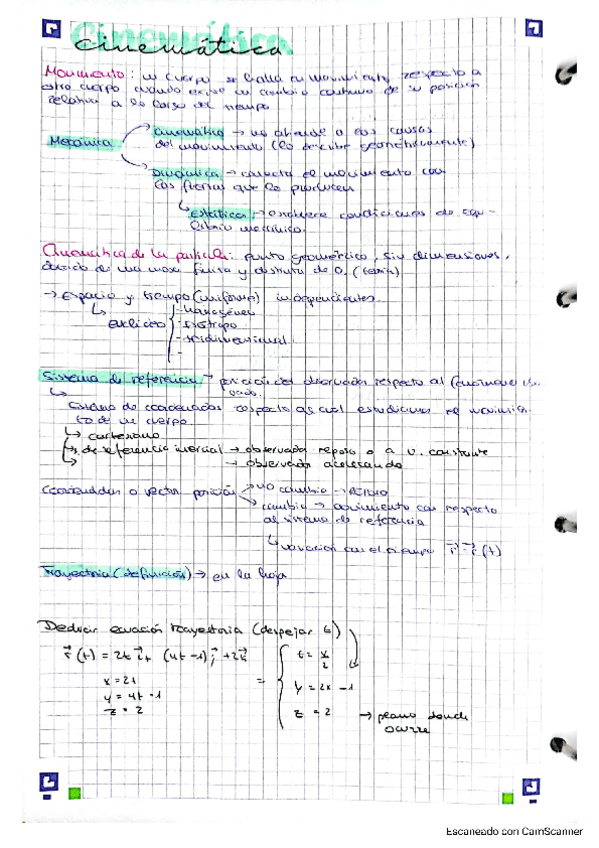 Cinemática
Movimiento: un cuerpo se halla en movimiento respecto a
otro cuerpo cuando existe un cambio continuo de su posición
relativa a lo largo del tiempo
Mecánica
Cinemática → no atiende a las causas
del movimiento (lo describe geométricamente)
Dinámica → conecta el movimiento con
las fuerzas que lo producen
estática → establece condiciones de equi-
librio mecánico.
Cinemática de la partícula: punto geométrico, sin dimensiones,
de una masa finita y distinta de 0. (teoría)
→ Espacio y tiempo (uniforme) independientes.
euclídeo
- homogéneo
- isótropo
- tridimensional
-
Sistema de referencia → posición del observador respecto al fenómeno
sistema de coordenadas respecto al cual estudiamos el movimien
to de un cuerpo
↳ cartesiano
↳ de referencia inercial → observador reposo o a v. constante
↳ → observador acelerando
Coordenadas o vector posición → no cambio → reposo
cambio → movimiento con respecto
al sistema de referencia
↳ variación con el tiempo r⃗ = r⃗(t)
Trayectoria (definición) → en la hoja
Deducir ecuación trayectoria (despejar t)
r⃗(t) = 2t i⃗ + (4t - 1) j⃗ + 2k⃗
x = 2t
y = 4t - 1
z = 2
=
t = x/2
y = 2x - 1
z = 2 → plano donde
ocurre
Escaneado con CamScanner